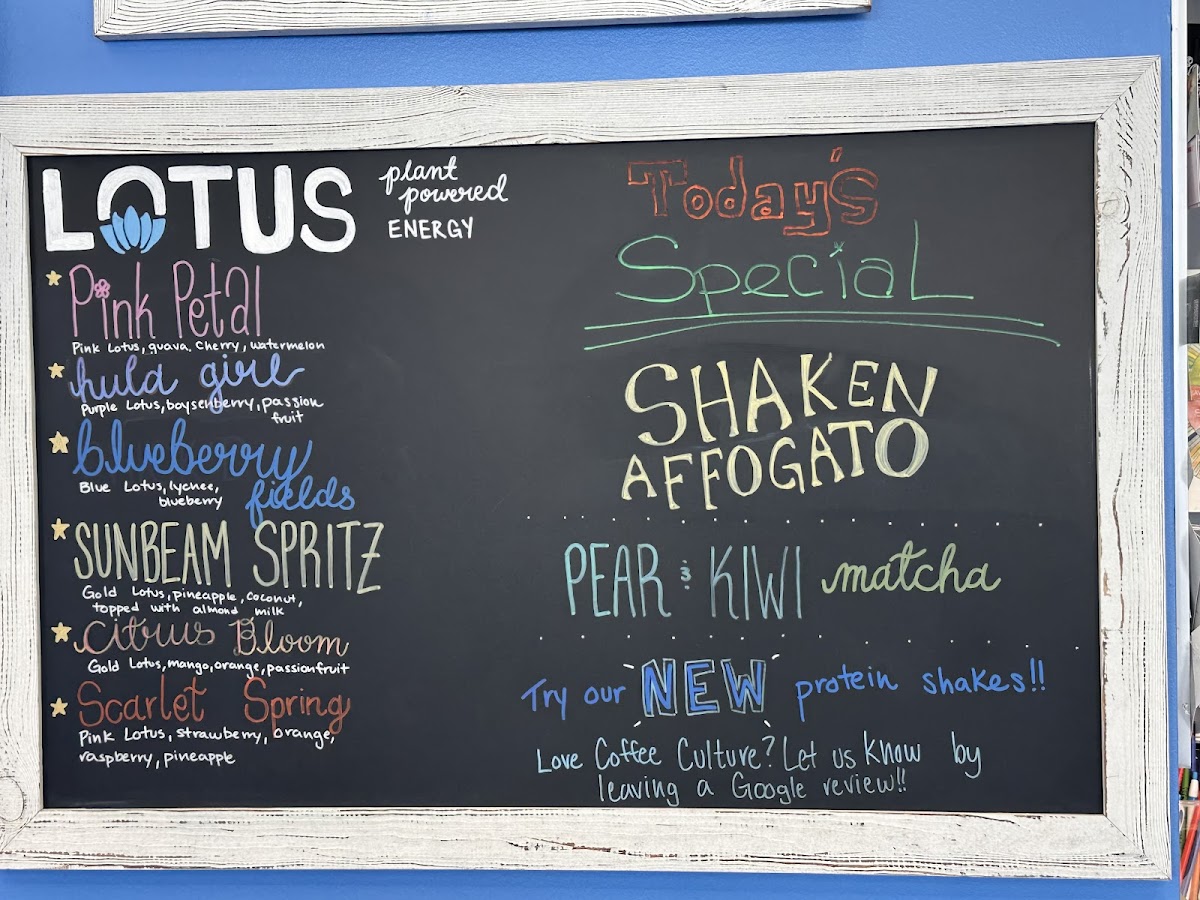 LOTUS
plant
powered
ENERGY
Pink Petal
Pink Lotus, guava, Cherry, watermelon
hula girl
Purple Lotus, boysenberry, passion
fruit
blueberry
fields
Blue Lotus, lychee,
blueberry
SUNBEAM SPRITZ
Gold Lotus, pineapple, coconut,
topped with almond milk
Citrus Bloom
Gold Lotus, mango, orange, passionfruit
Scarlet Spring
Pink Lotus, strawberry, orange,
raspberry, pineapple
Today's
Special
SHAKEN
AFFOGATO
PEAR & KIWI matcha
Try our NEW protein shakes!!
Love Coffee Culture? Let us know by
leaving a Google review!!